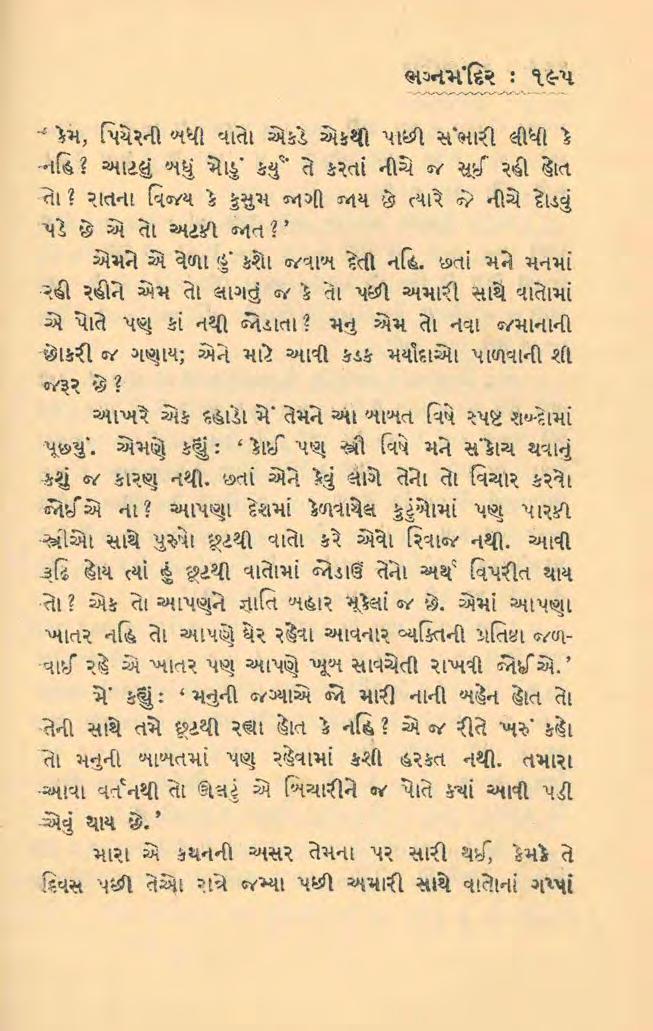 ભગ્નમંદિર : ૧૯૫
‘ કેમ, પિયેરની બધી વાતો એકડે એકથી પાછી સંભારી લીધી કે
નહિ? આટલું બધું મોડું કર્યું તે કરતાં નીચે જ સૂઈ રહી હોત
તો? રાતના વિજય કે કુસુમ જાગી જાય છે ત્યારે જે નીચે દોડવું
પડે છે એ તો અટકી જાત?’
એમને એ વેળા હું કશો જવાબ દેતી નહિ. છતાં મને મનમાં
રહી રહીને એમ તો લાગતું જ કે તો પછી અમારી સાથે વાતોમાં
એ પોતે પણ કાં નથી જોડાતા? મનુ એમ તો નવા જમાનાની
છોકરી જ ગણાય; એને માટે આવી કડક મર્યાદાઓ પાળવાની શી
જરૂર છે?
આખરે એક દહાડો મેં તેમને આ બાબત વિષે સ્પષ્ટ શબ્દોમાં
પૂછ્યું. એમણે કહ્યું: ‘કોઈ પણ સ્ત્રી વિષે મને સંકોચ થવાનું
કશું જ કારણ નથી. છતાં એને કેવું લાગે તેનો તો વિચાર કરવો
જોઈએ ના? આપણા દેશમાં કેળવાયેલ કુટુંબોમાં પણ પારકી
સ્ત્રીઓ સાથે પુરુષો છૂટથી વાતો કરે એવો રિવાજ નથી. આવી
રૂઢિ હોય ત્યાં હું છૂટથી વાતોમાં જોડાઉં તેનો અર્થ વિપરીત થાય
તો? એક તો આપણને જ્ઞાતિ બહાર મૂકેલાં જ છે. એમાં આપણા
ખાતર નહિ તો આપણે ઘેર રહેવા આવનાર વ્યક્તિની પ્રતિષ્ઠા જળ-
વાઈ રહે એ ખાતર પણ આપણે ખૂબ સાવચેતી રાખવી જોઈએ.’
મેં કહ્યું: ‘મનુની જગ્યાએ જો મારી નાની બહેન હોત તો
તેની સાથે તમે છૂટથી રહ્યા હોત કે નહિ? એ જ રીતે ખરું કહો
તો મનુની બાબતમાં પણ રહેવામાં કશી હરકત નથી. તમારા
આવા વર્તનથી તો ઊલટું એ બિચારીને જ પોતે ક્યાં આવી પડી
એવું થાય છે.’
મારા એ કથનની અસર તેમના પર સારી થઈ, કેમકે તે
દિવસ પછી તેઓ રાત્રે જમ્યા પછી અમારી સાથે વાતોનાં ગપ્પાં